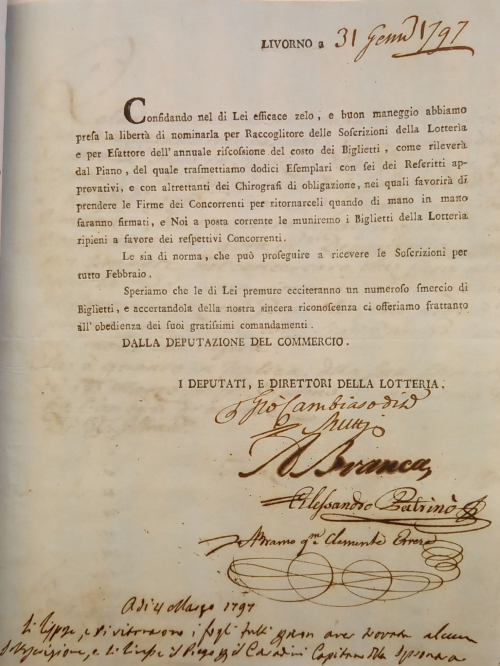 LIVORNO a 31 Genn.º 1797
Confidando nel di Lei efficace zelo, e buon maneggio abbiamo
presa la libertà di nominarla per Raccoglitore delle Soscrizioni della Lotteria
e per Esattore dell'annuale riscossione del costo dei Biglietti, come rileverà
dal Piano, del quale trasmettiamo dodici Esemplari con sei dei Rescritti ap-
provativi, e con altrettanti dei Chirografi di obligazione, nei quali favorirà di
prendere le Firme dei Concorrenti per ritornarceli quando di mano in mano
faranno firmati, e Noi a posta corrente le muniremo i Biglietti della Lotteria
ripieni a favore dei respettivi Concorrenti.
Le sia di norma, che può proseguire a ricevere le Soscrizioni per
tutto Febbraio.
Speriamo che le di Lei premure ecciteranno un numeroso smercio di
Biglietti, e accertandola della nostra sincera riconoscenza ci offeriamo frattanto
all'obedienza dei suoi gratissimi comandamenti.
DALLA DEPUTAZIONE DEL COMMERCIO.
I DEPUTATI, E DIRETTORI DELLA LOTTERIA.
Gio Cambiaso
Branca
Alessandro Patrinò
Abramo qm Clemente Errera
Adi 4 Marzo 1797
i fogli tutti aver trovata alcuna
Capitano